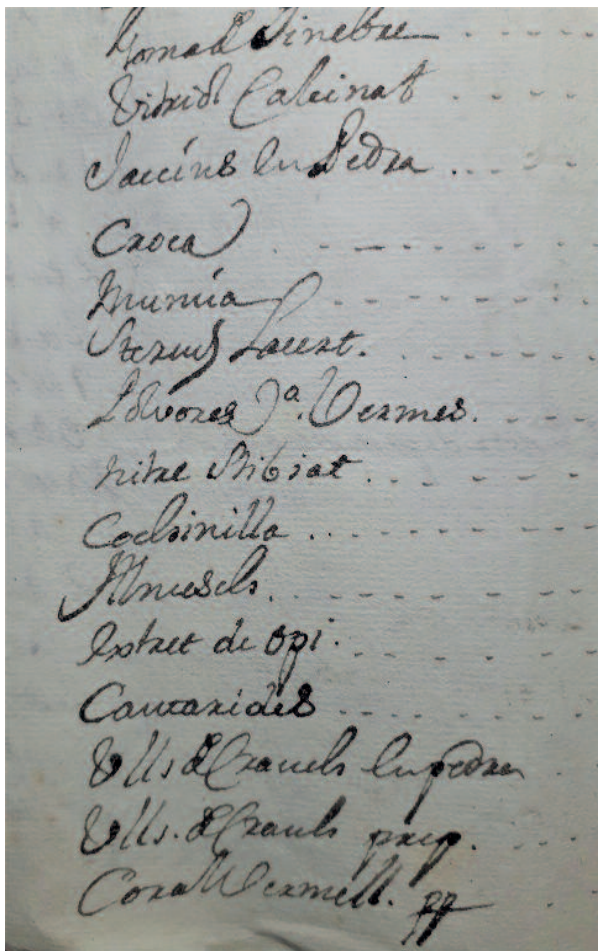 Goma d Ginebre
Vitriol Calcinat
Jaccins en Pedra
Croca
Mumia
Stercus Lacert.
Polvores Jª. Vermes.
Nitre Stibiat
Cochinilla
Extret de opi.
Cantarides
Ulls d Cranchs en pedra
Ulls. d Cranchs prep.
Coral Vermell. pp